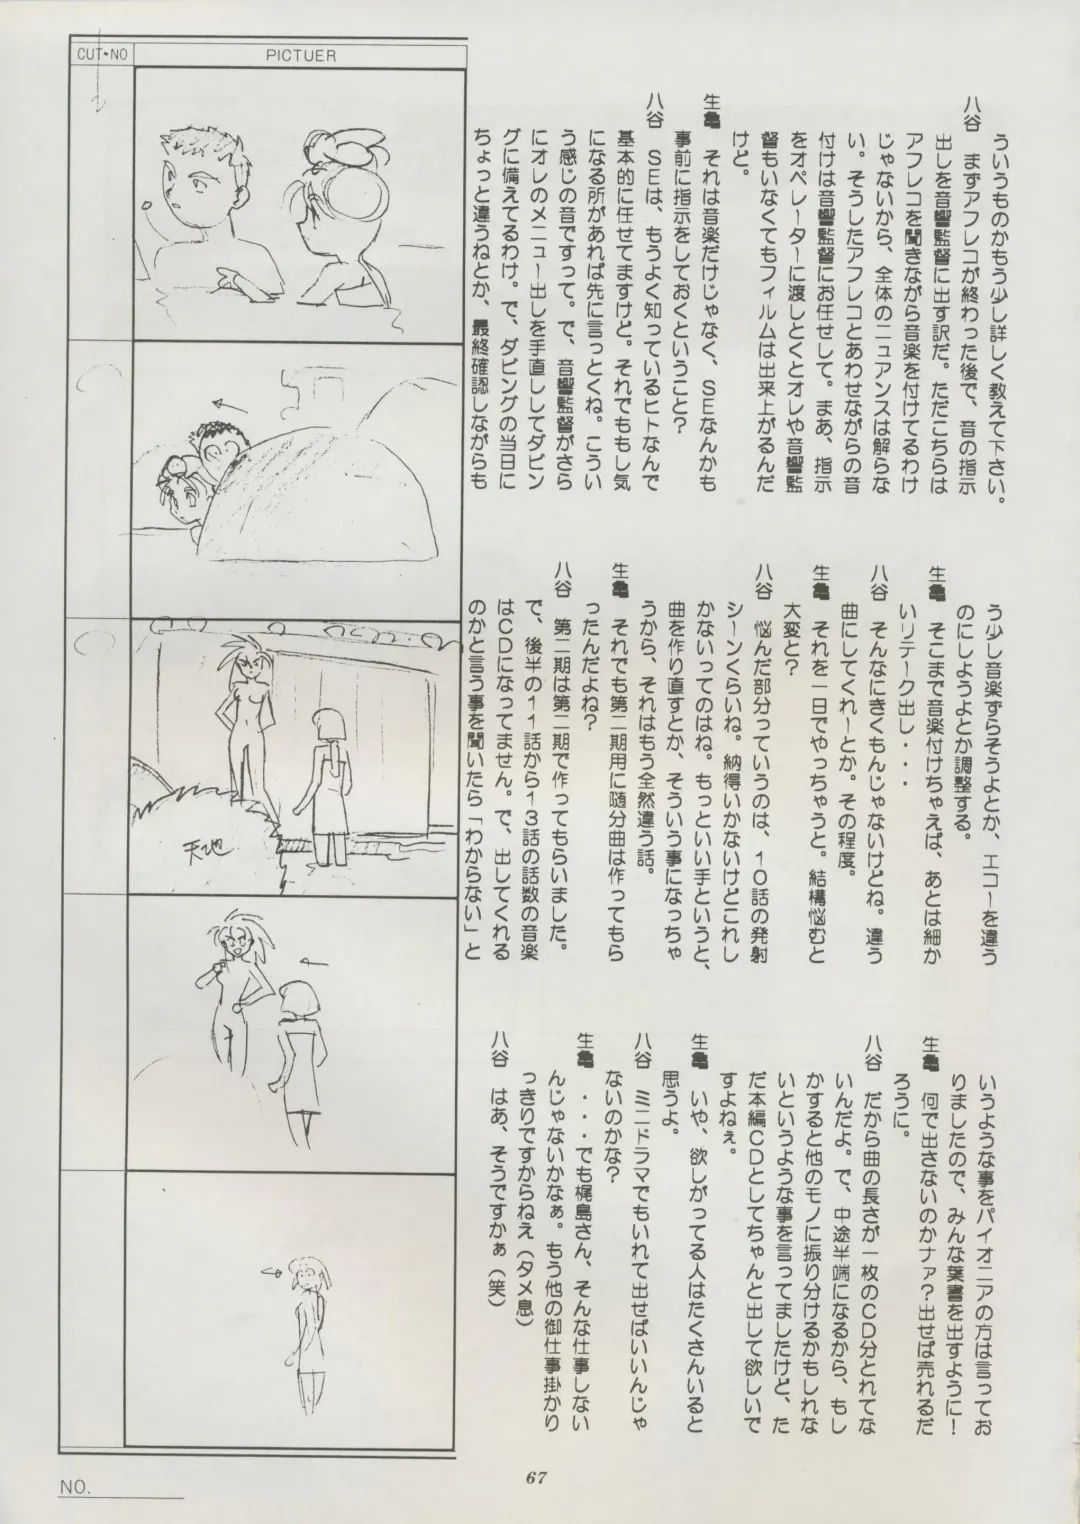 CUT・NO
PICTUER
ういうものかもう少し詳しく教えて下さい。
八谷　まずアフレコが終わった後で、音の指示
出しを音響監督に出す訳だ。ただこちらは
アフレコを聞きながら音楽を付けてるわけ
じゃないから、全体のニュアンスは解らな
い。そうしたアフレコとあわせながらの音
付けは音響監督にお任せして。まあ、指示
をオペレーターに渡しとくとオレや音響監
督もいなくてもフィルムは出来上がるんだ
けど。
生亀　それは音楽だけじゃなく、SEなんかも
事前に指示をしておくということ？
八谷　SEは、もうよく知っているヒトなんで
基本的に任せてますけど。それでももし気
になる所があれば先に言っとくね。こうい
う感じの音ですって。で、音響監督がさら
にオレのメニュー出しを手直ししてダビン
グに備えてるわけ。で、ダビングの当日に
ちょっと違うねとか、最終確認しながらも
う少し音楽ずらそうよとか、エコーを違う
のにしようよとか調整する。
生亀　そこまで音楽付けちゃえば、あとは細か
いリテーク出し・・・
八谷　そんなにきくもんじゃないけどね。違う
曲にしてくれーとか。その程度。
生亀　それを一日でやっちゃうと。結構悩むと
大変と？
八谷　悩んだ部分っていうのは、10話の発射
シーンくらいね。納得いかないけどこれし
かないってのはね。もっといい手というと、
曲を作り直すとか、そういう事になっちゃ
うから、それはもう全然違う話。
生亀　それでも第二期用に随分曲は作ってもら
ったんだよね？
八谷　第二期は第二期で作ってもらいました。
で、後半の11話から13話の話数の音楽
はCDになってません。で、出してくれる
のかと言う事を聞いたら「わからない」と
いうような事をパイオニアの方は言ってお
りましたので、みんな葉書を出すように！
生亀　何で出さないのかナァ？出せば売れるだ
ろうに。
八谷　だから曲の長さが一枚のCD分とれてな
いんだよ。で、中途半端になるから、もし
かすると他のモノに振り分けるかもしれな
いというような事を言ってましたけど、た
だ本編CDとしてちゃんと出して欲しいで
すよねぇ。
生亀　いや、欲しがってる人はたくさんいると
思うよ。
八谷　ミニドラマでもいれて出せばいいんじゃ
ないのかな？
生亀　・・・でも梶島さん、そんな仕事しない
んじゃないかなぁ。もう他の御仕事掛かり
っきりですからねえ（タメ息）
八谷　はあ、そうですかぁ（笑）
天地
NO.
67